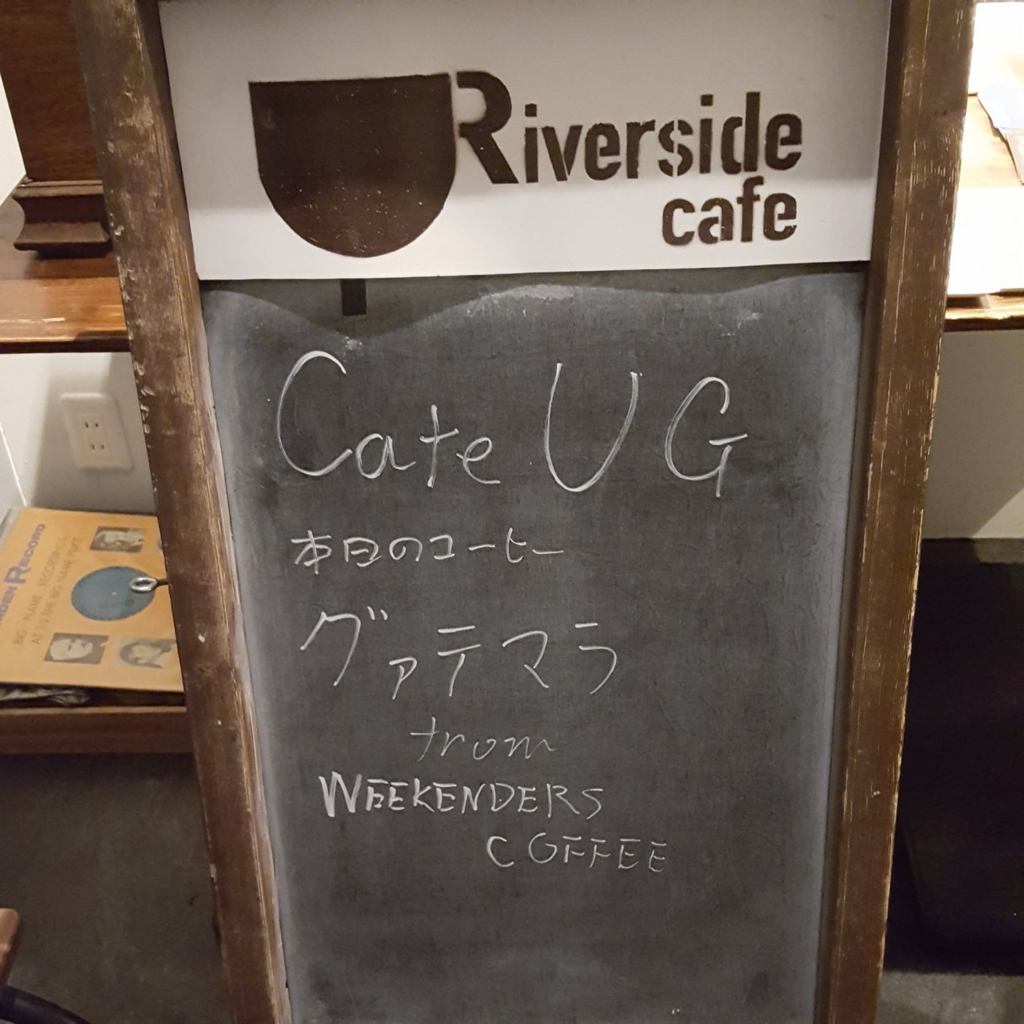 Riverside
cafe
Cafe UG
本日のコーヒー
グァテマラ
from
WEEKENDERS
COFFEE
RECORD
BIG NAME RECORDINGS